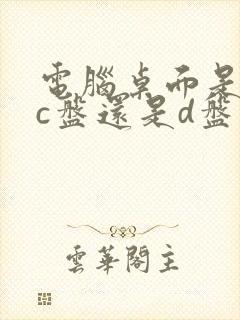 電腦桌面是
c盤還是d盤
雲華閣主